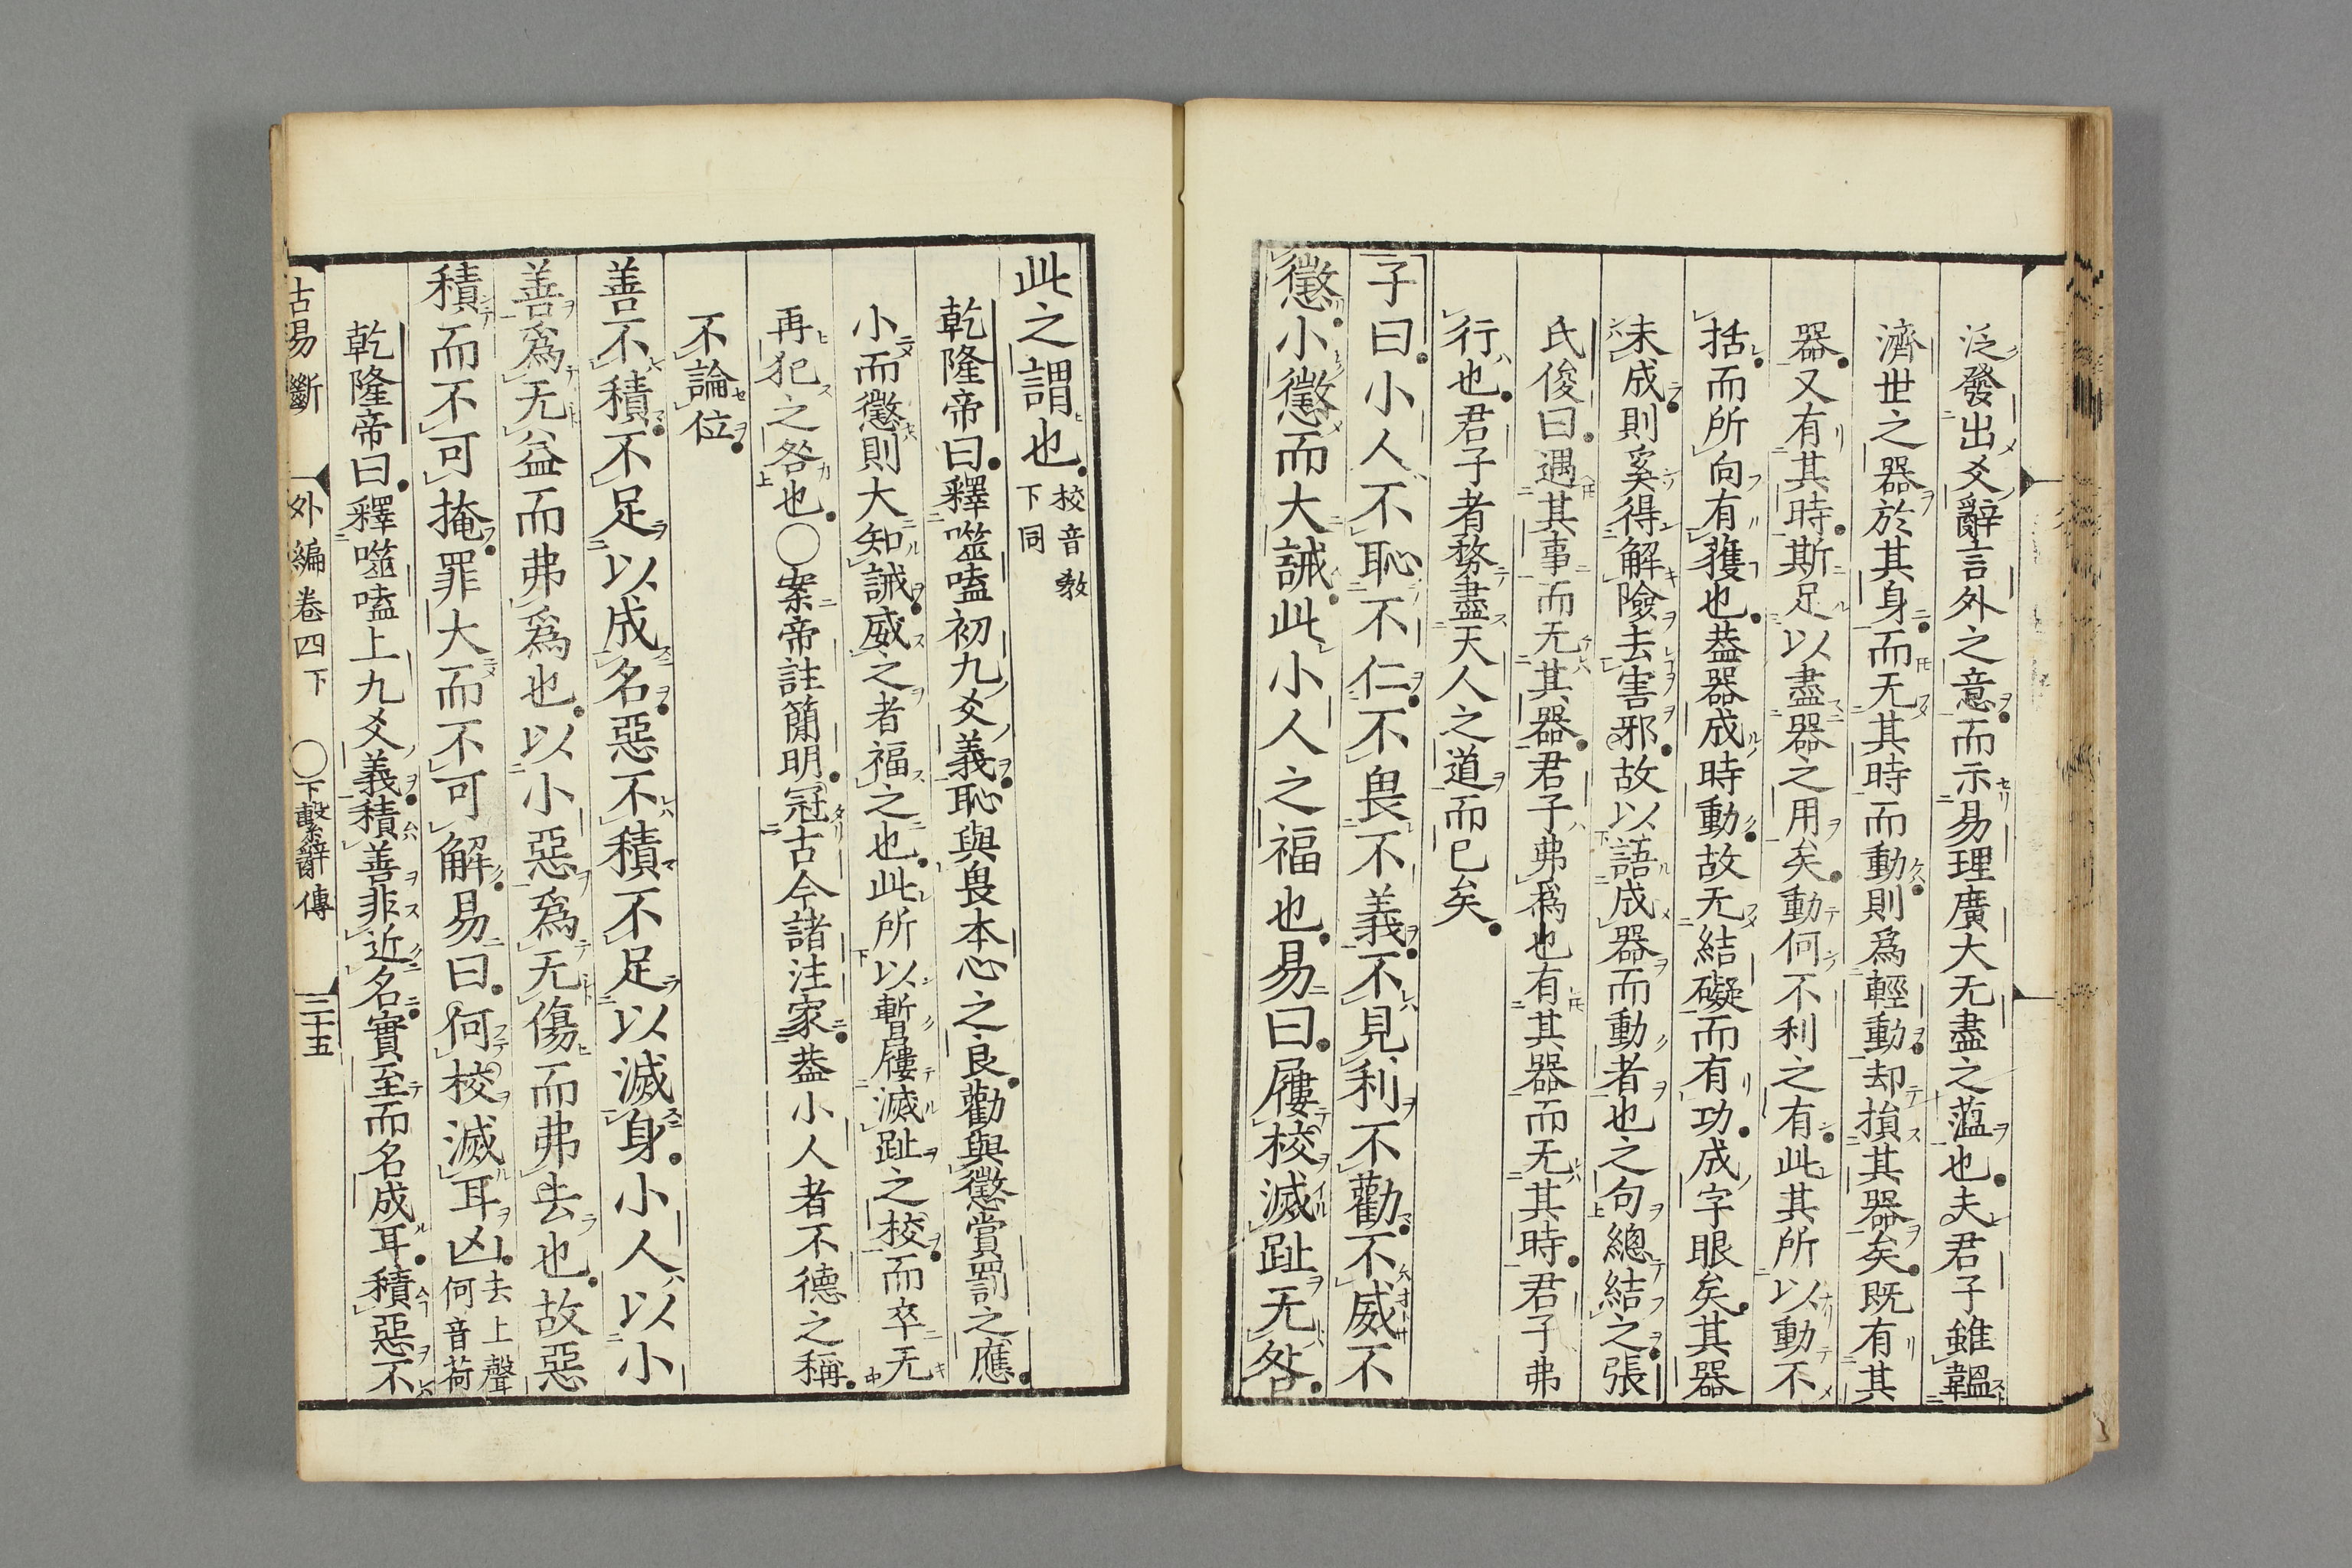 泛發出爻辭言外之意而示易理廣大无盡之蘊也夫君子雖韞
濟世之器於其身而无其時而動則爲輕動却損其器矣既有其
器又有其時斯足以盡器之用矣動何不利之有此其所以動不
括而所向有獲也葢器成時動故无結礙而有功成字眼矣其器
未成則奚得解險去害邪故以語成器而動者也之句總結之張
氏俊曰遇其事而无其器君子弗爲也有其器而无其時君子弗
行也君子者務盡天人之道而已矣
子曰小人不恥不仁不畏不義不見利不勸不威不
懲小懲而大誡此小人之福也易曰屨校滅趾无咎
此之謂也校音教下同
乾隆帝曰釋噬嗑初九爻義恥與畏本心之良勸與懲賞罰之應
小而懲則大知誡威之者福之也此所以暫屨滅趾之校而卒无
再犯之咎也○案帝註簡明冠古今諸注家葢小人者不德之稱
不論位
善不積不足以成名惡不積不足以滅身小人以小
善爲无益而弗爲也以小惡爲无傷而弗去也故惡
積而不可掩罪大而不可解易曰何校滅耳凶去上聲何音荷
乾隆帝曰釋噬嗑上九爻義積善非近名實至而名成耳積惡不
古易斷 外編卷四下 ○下繫辭傳 三十五